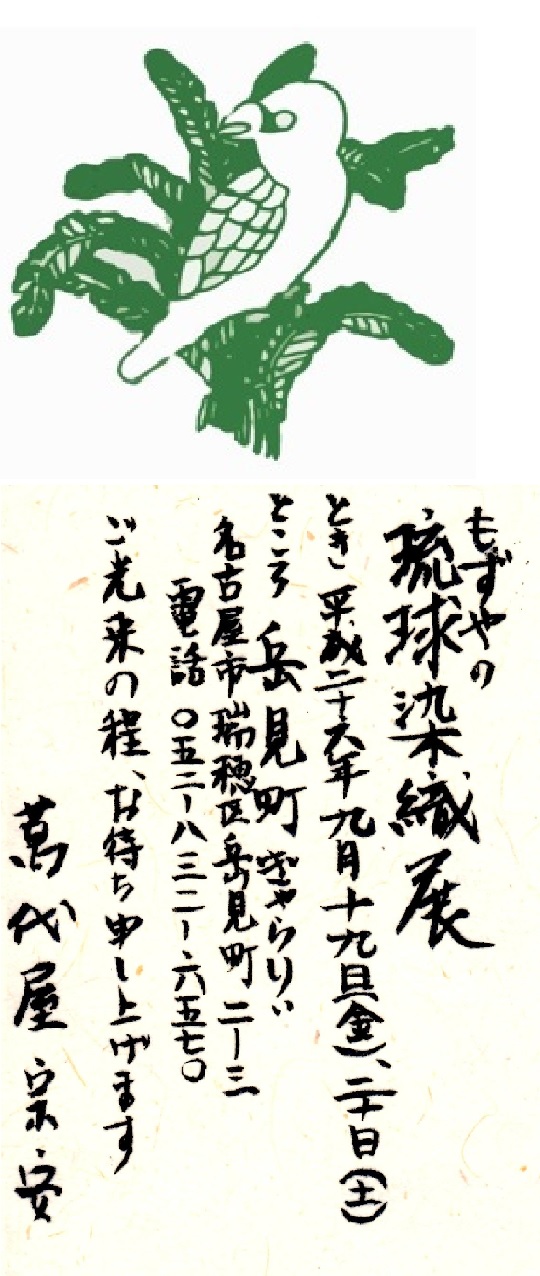 もずやの
琉球染織展
とき 平成二十六年九月十九日(金)、二十日(土)
ところ 岳見町ぎゃらりい
名古屋市瑞穂区岳見町二ー三
電話 〇五二ー八三二ー六五七〇
ご光来の程、お待ち申し上げます
萬代屋宗安